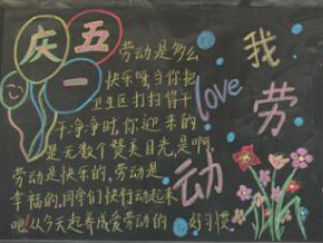 庆五一
劳动是多么
快乐呀,当你把
卫生区打扫得干
干净净时,你迎来的
是无数个赞美目光,是啊,
劳动是快乐的,劳动是
幸福的,同学们快行动起来
吧!从今天起养成爱劳动的好习惯
我劳动
love